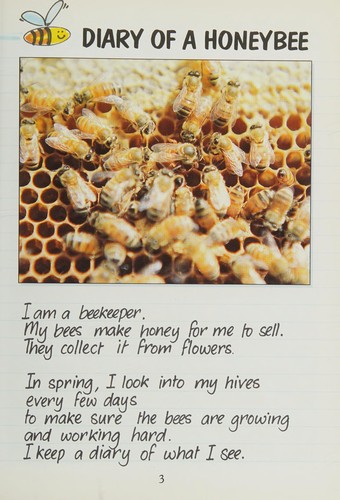 DIARY OF A HONEYBEE
I am a beekeeper.
My bees make honey for me to sell.
They collect it from flowers.
In spring, I look into my hives
every few days
to make sure the bees are growing
and working hard.
I keep a diary of what I see.
3